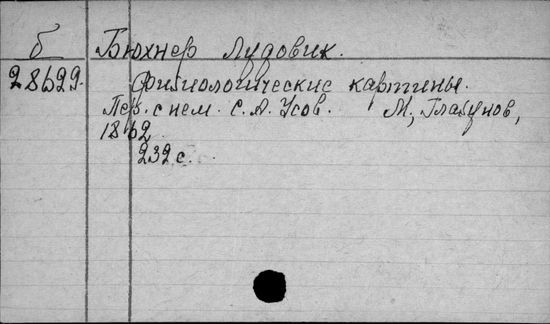 б Бюхнер Лудовик.
28629. Физиологические картины.
Пер. с нем. С. А. Усов. М, Глазунов,
1862
232 с.